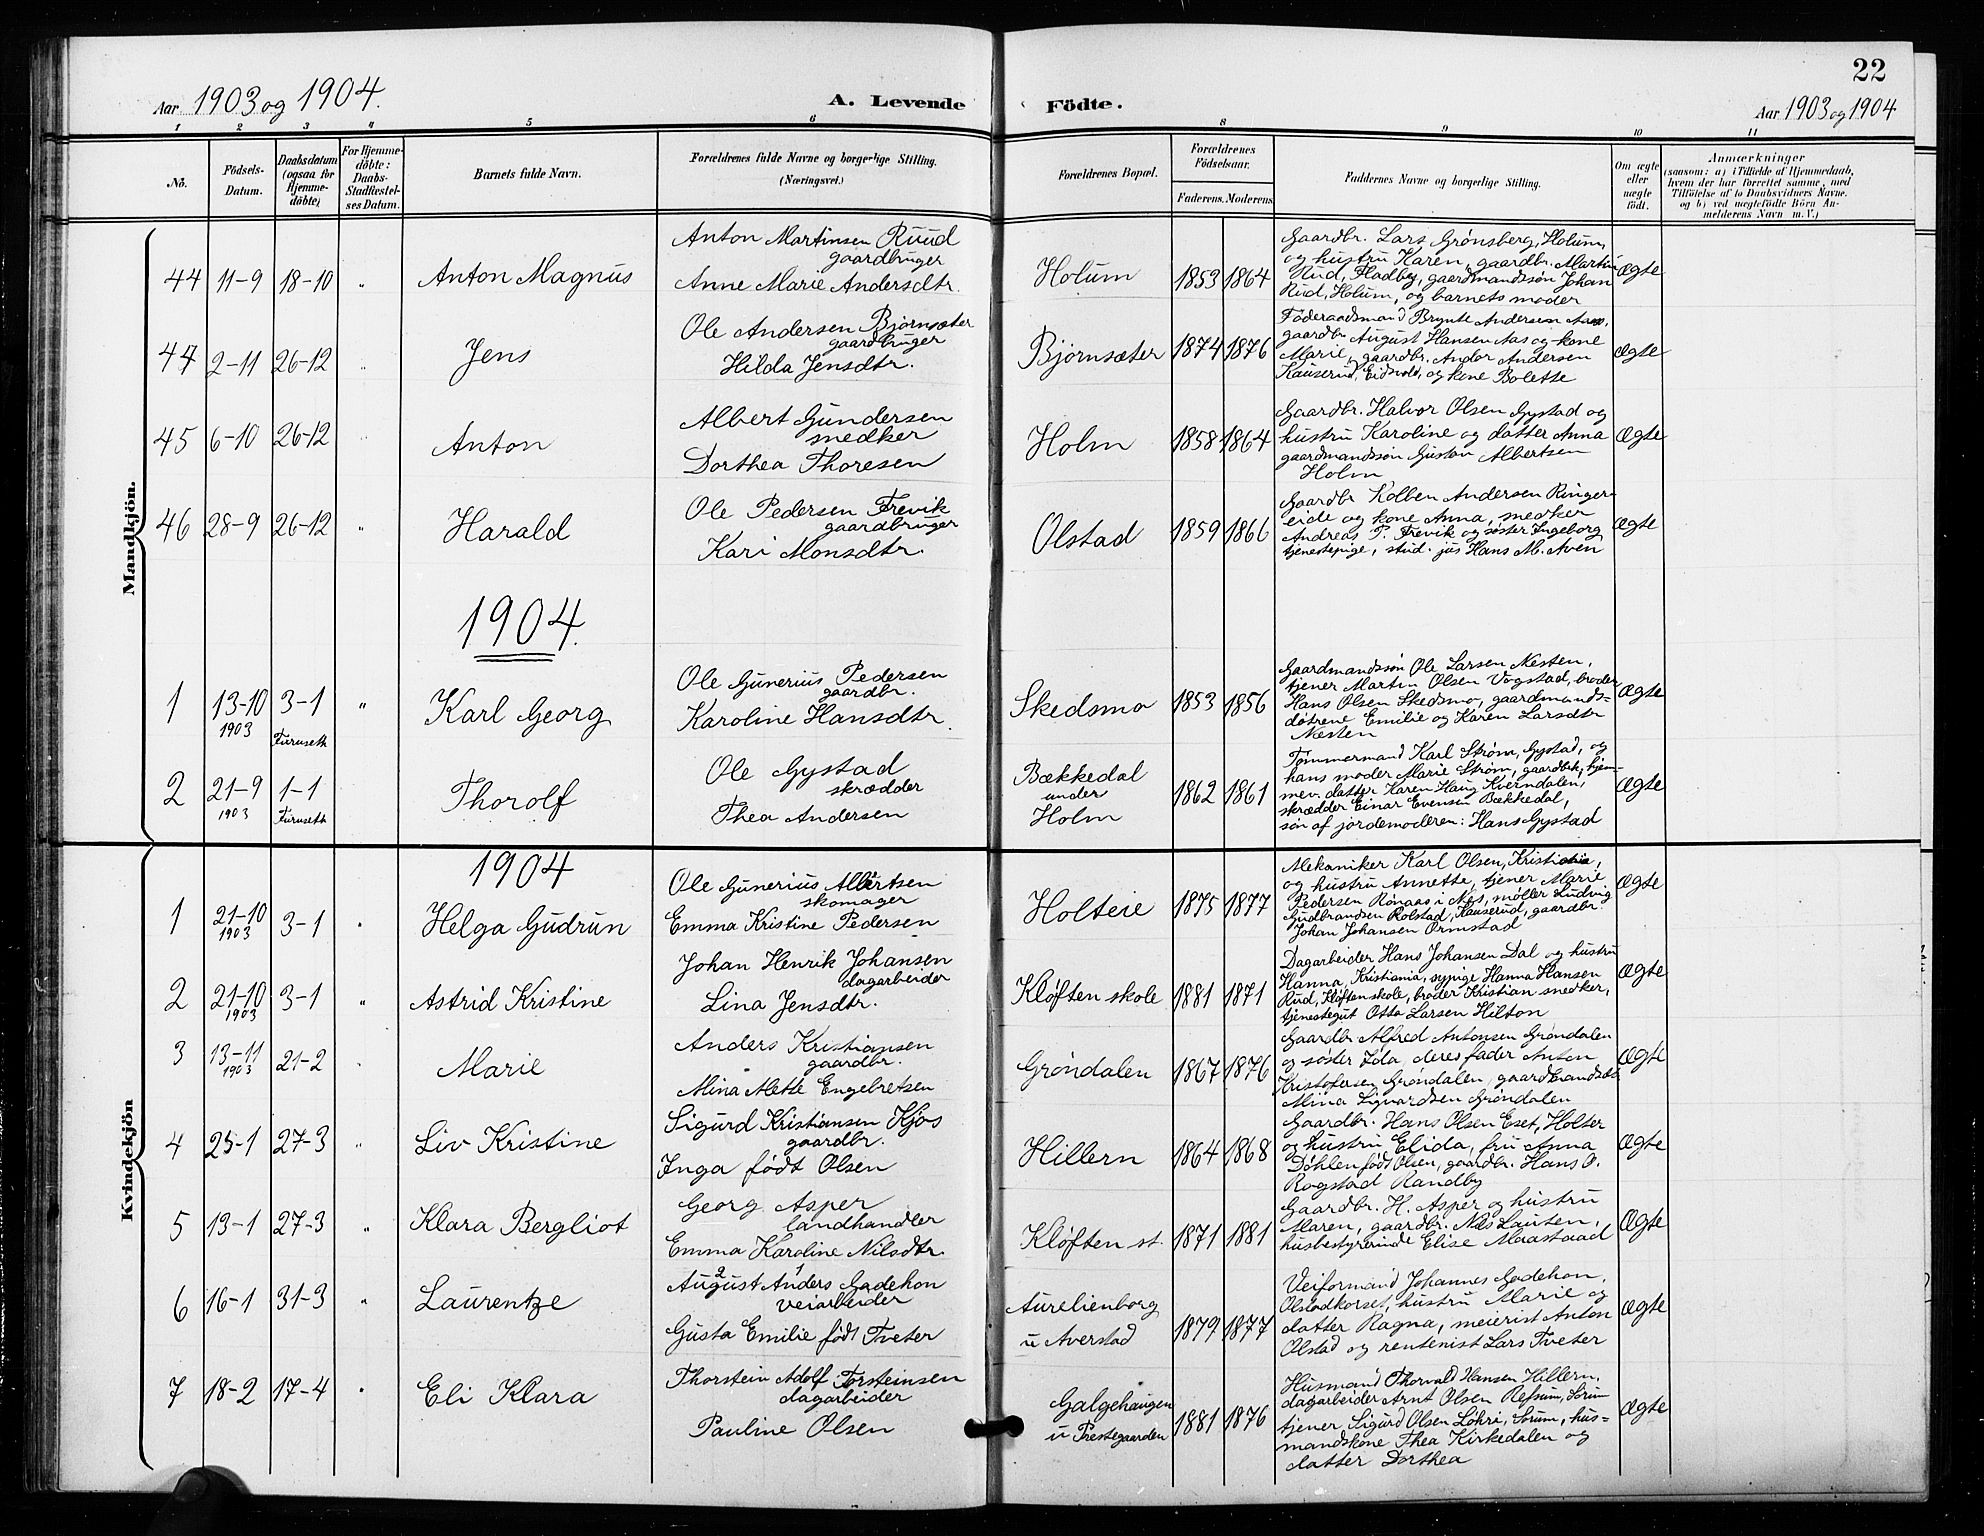 22
Aar 1903 og 1904.
A. Levende
Födte.
Aar 1903 og 1904
1 2 3 4 5 6
8 9 10 11
No.
Födsels-
Datum.
Daabsdatum
(ogsaa for
Hjemme-
döbte)
For Hjemme-
döbte:
Daabs-
Stadfestel-
ses Datum.
Barnets fulde Navn.
Forældrenes fulde Navne og borgerlige Stilling.
(Næringsvei.)
Forældrenes Bopæl.
Forældrenes
Födselsaar.
Faderens. Moderens
Faddernes Navne og borgerlige Stilling.
Om ægte
eller
uægte
födt.
Anmærkninger
(saasom: a) i Tilfælde af Hjemmedaab,
hvem der har forrettet samme, med
Tilföielse af to Daabsvidners Navne.
og b) ved uægtefödte Börn An-
melderens Navn m. V.)
Mandkjön.
44 11-9 18-10 " Anton Magnus
Anton Martinsen Ruud
gaardbruger
Anne Marie Andersdtr.
Holum 1853 1864
Gaardbr. Lars Grønsberg, Holum,
og hustru Karen, gaardbr. Martin
Rud, Fladby, gaardmandssøn Johan
Rud, Holum, og barnets moder
Ægte
44 2-11 26-12 " Jens
Ole Andersen Bjørnsæter
gaardbruger
Hilda Jensdtr.
Bjørnsæter 1874 1876
Føderaadsmand Brynte Andersen Aas,
gaardbr August Hansen Aas og kone
Marie, gaardbr. Andor Andersen
Kauserud, Eidsvold, og kone Bolette
Ægte
45 6-10 26-12 " Anton
Albert Gundersen
snedker
Dorthea Thoresen
Holm 1858 1864
Gaardbr. Halvor Olsen Gystad og
hustru Karoline og datter Anna
gaardmandssøn Gustav Albertsen
Holm
Ægte
46 28-9 26-12 " Harald
Ole Pedersen Frevik
gaardbruger
Kari Monsdtr.
Olstad 1859 1866
Gaardbr Kolben Andersen Ringer-
eide og kone Anna, snedker
Andreas P. Frevik og søster Ingeborg
tjenestepige, stud. jus Hans M. Aven
Ægte
1904.
1 13-10 1903 3-1 Furuseth " Karl Georg
Ole Gunerius Pedersen
gaardbr.
Karoline Hansdtr.
Skedsmo 1853 1856
Gaardmandssøn Ole Larsen Nesten,
tjener Martin Olsen Vogstad, broder
Hans Olsen Skedsmo, gaardmands-
døtrene Emilie og Karen Larsdtr
Nesten
Ægte
2 21-9 1903 1-1 Furuseth Thorolf
Ole Gystad
skrædder
Thea Andersen
Bækkedal
under
Holm
1862 1861
Tømmermand Karl Strøm, Gystad, og
hans moder Marie Strøm, gaardbr, hjem-
mev. datter Karen Haug Kverndalen,
skrædder Einar Evensen Bækkedal,
søn af jordemoderen: Hans Gystad
Ægte
Kvindekjön
1904
1 21-10 1903 3-1 " Helga Gudrun
Ole Gunerius Albertsen
skomager
Emma Kristine Pedersen
Holteie 1875 1877
Mekaniker Karl Olsen, Kristiania,
og hustru Annette, tjener Marie
Pedersen Rønaas i Nes, møller Ludvig
Gudbrandsen Rolstad, Kauserud, gaardbr.
Johan Johansen Ormstad
Ægte
2 21-10 1903 3-1 " Astrid Kristine
Johan Henrik Johansen
dagarbeider
Lina Jensdtr.
Kløften skole 1881 1871
Dagarbeider Hans Johansen Dal og hustru
Hanna, Kristiania, sypige Hanna Hansen
Rud, Kløften skole, broder Kristian snedker,
tjenestegut Otto Larsen Hilton
Ægte
3 13-11 1903 21-2 " Marie
Anders Kristiansen
gaardbr.
Mina Mette Engebretsen
Grøndalen 1867 1876
Gaardbr Alfred Antonsen Grøndalen
og søster Ida, deres fader Anton
Kristofersen Grøndalen, gaardmandsdtr
Mina Sigvardsen Grøndalen
Ægte
4 25-1 27-3 " Liv Kristine
Sigurd Kristiansen Kjos
gaardbr.
Inga født Olsen
Hillern 1864 1868
Gaardbr. Hans Olsen Eset, Holter
og hustru Elida, fru Anna
Døhlen født Olsen, gaardbr. Hans O.
Rogstad Randby
Ægte
5 13-1 27-3 " Klara Bergliot
Georg Asper
landhandler
Emma Karoline Nilsdtr.
Kløften st. 1871 1881
Gaardbr. H. Asper og hustru
Maren, gaardbr. Nils Lauten,
husbestyrerinde Elise Maastaad
Ægte
6 16-1 31-3 " Laurentze
2 1
August Anders Gadehon
veiarbeider
Gusta Emilie født Tveter
Aurelienborg
u Averstad
1879 1877
Veiformand Johannes Gadehon,
Olstadkorset, hustru Marie og
datter Ragna, meierist Anton
Olstad og rentenist Lars Tveter
Ægte
7 18-2 17-4 " Eli Klara
Thorstein Adolf Torsteinsen
dagarbeider
Pauline Olsen
Galgehaugen
u Prestegaarden
1881 1876
Husmand Thorvald Hansen Hillern,
dagarbeider Arnt Olsen Refsum, Sørum
tjener Sigurd Olsen Løhri, Sørum, hus-
mandskone Thea Kirkedalen og
datter Dorthea
Ægte